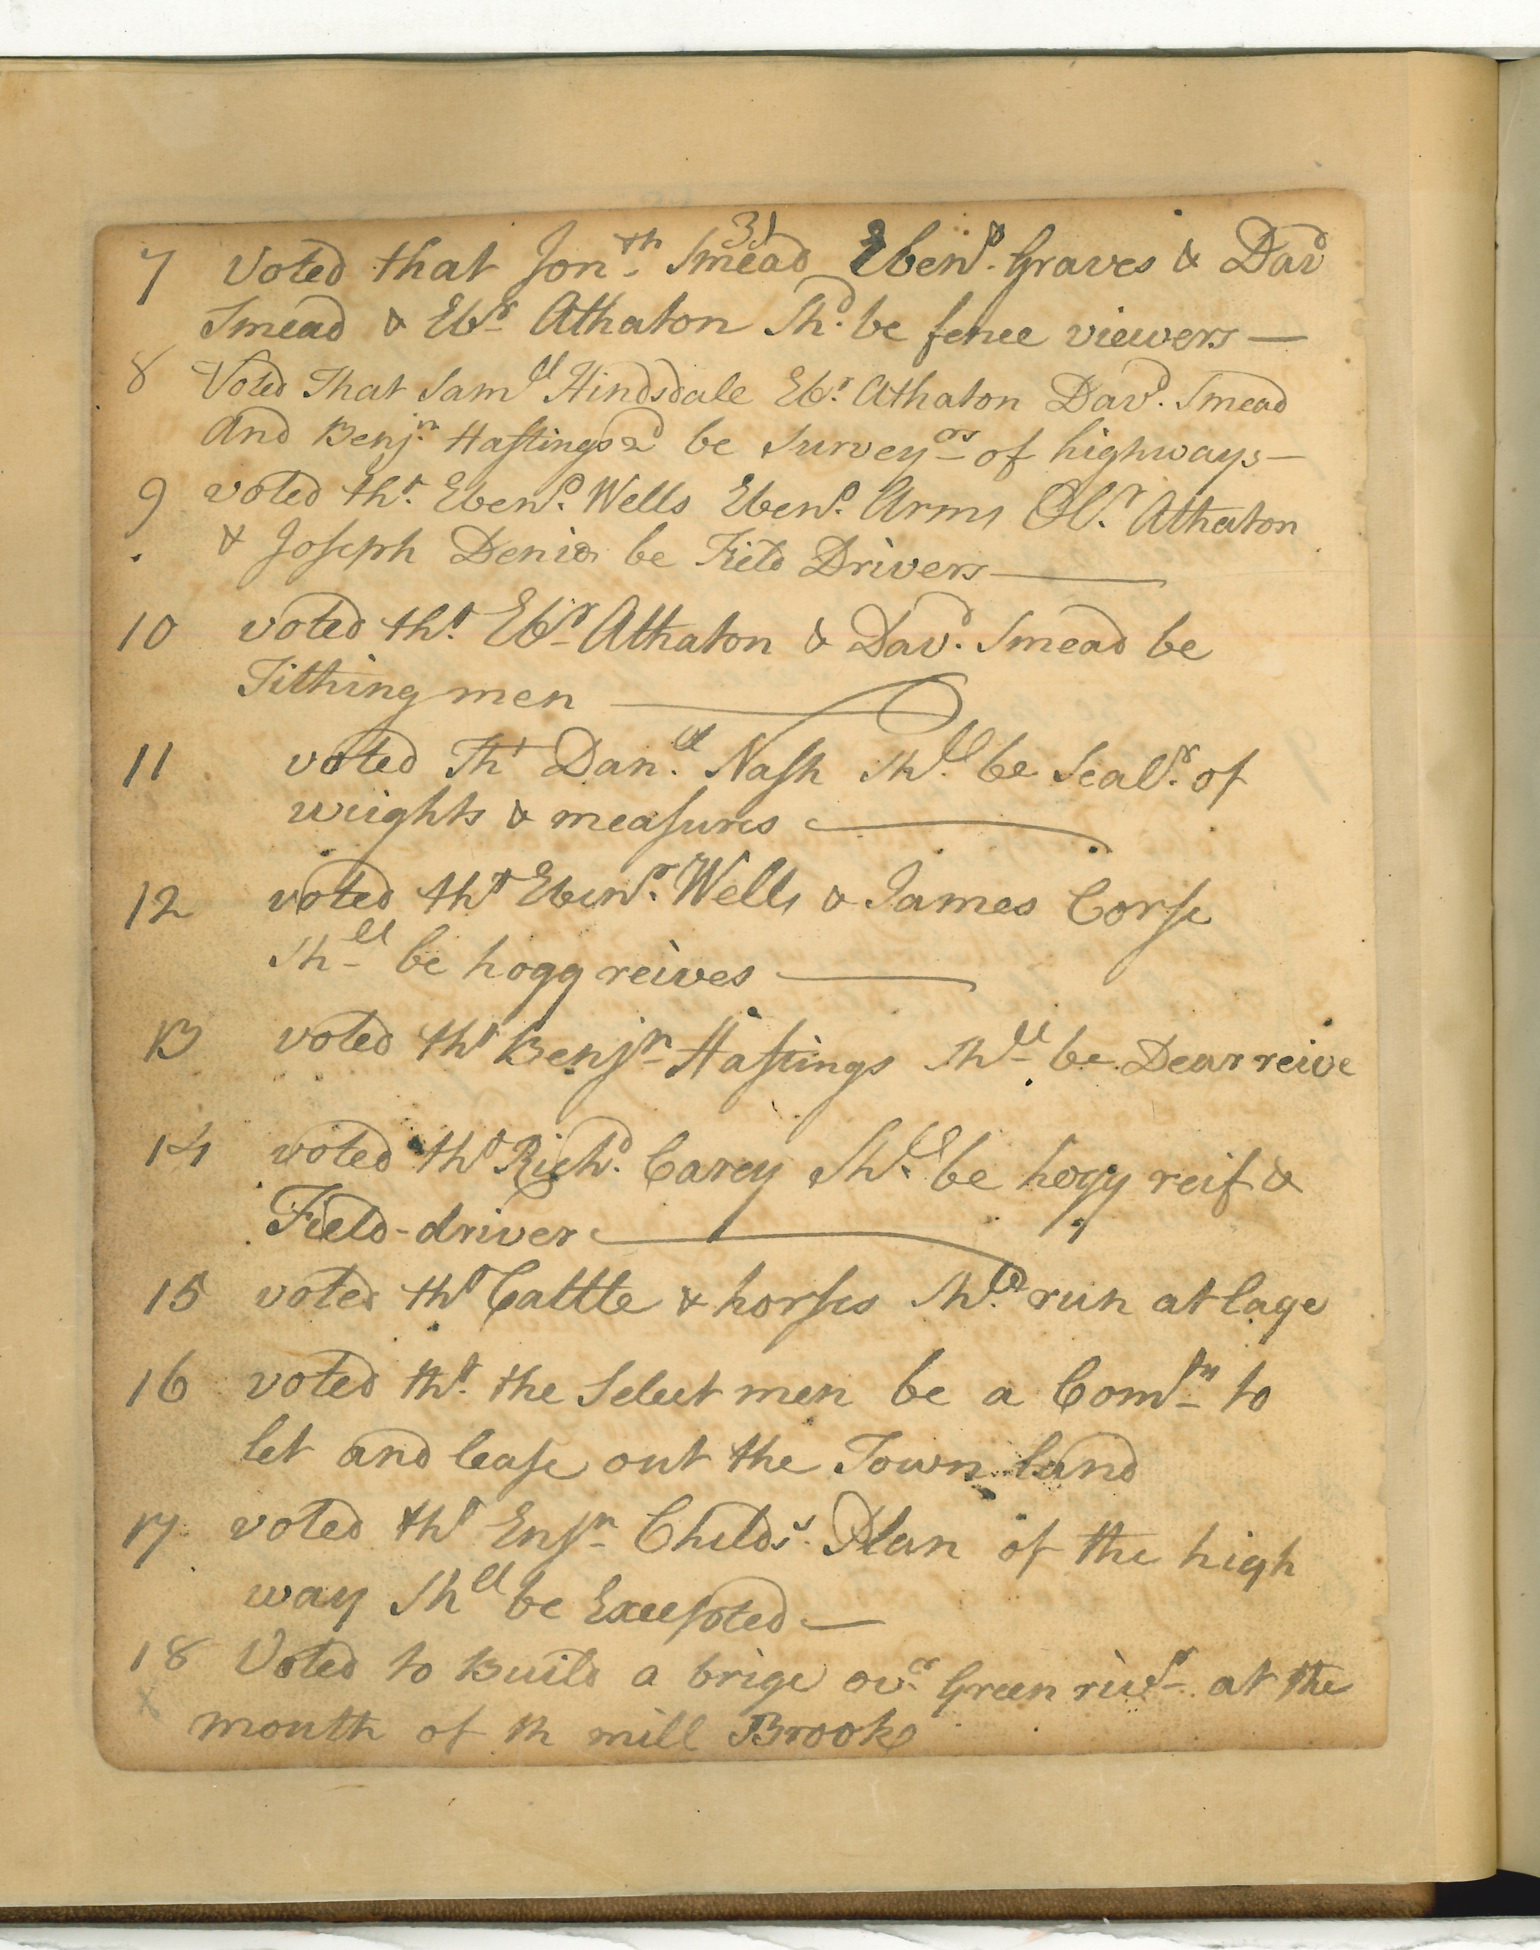 31
7 Voted that Jonth Smead Ebenr. Graves & Dav
Smead & Ebr Athaton Shd. be fence viewers —
8 Voted That Samll Hindsdale Ebr. Athaton Davd. Smead
And Benjn. Hastings 2d be Surveyors of highways —
9 voted tht. Ebenr. Wells Ebenr. Arms Olr. Athaton
& Joseph Denio be Field Drivers —
10 voted tht. Ebr Athaton & Davd. Smead be
Tithing men —
11 voted Tht Danll. Nash Shll. be Sealr. of
wieghts & measures —
12 voted tht Ebenr. Wells & James Corse
Shll be hogg reives —
13 voted tht Benjn Hastings Shll be Dear reive
14 voted tht Richd. Carey Shll. be hogg reif &
Field-driver —
15 voted tht Cattle & horses Shld. run at lage
16 voted tht. the Select men be a Comtn to
let and lease out the Town land
17 voted tht Ensn Childs's. Plan of the high
way Shll be Excepted —
18 Voted to Build a brige ovr. Green rivr. at the
x mouth of th mill Brook